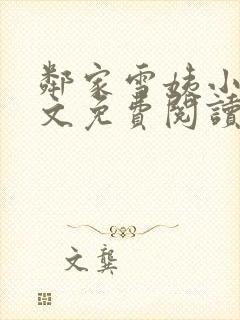 鄰家雪姨小
文免費閱讀
文龔